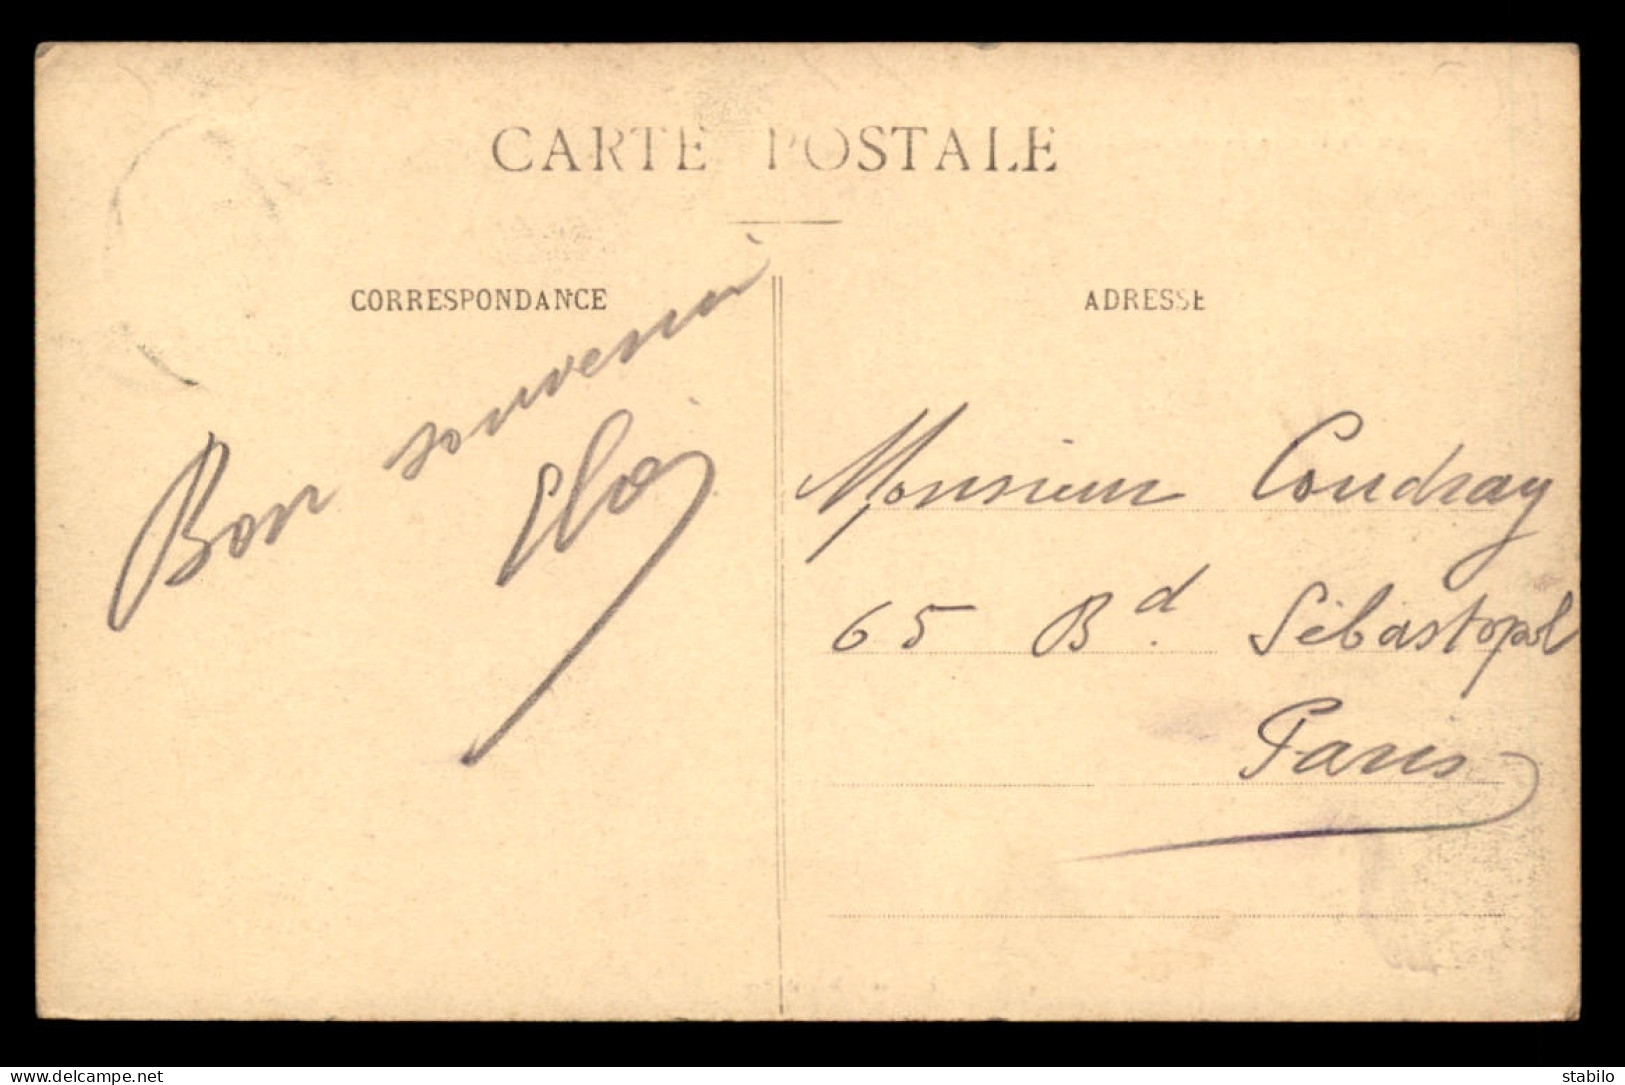 CARTE POSTALE
CORRESPONDANCE
Bon souvenir
Eloi
ADRESSE
Monsieur Coudray
65 Bd. Sébastopol
Paris
www.delcampe.net
stabilo